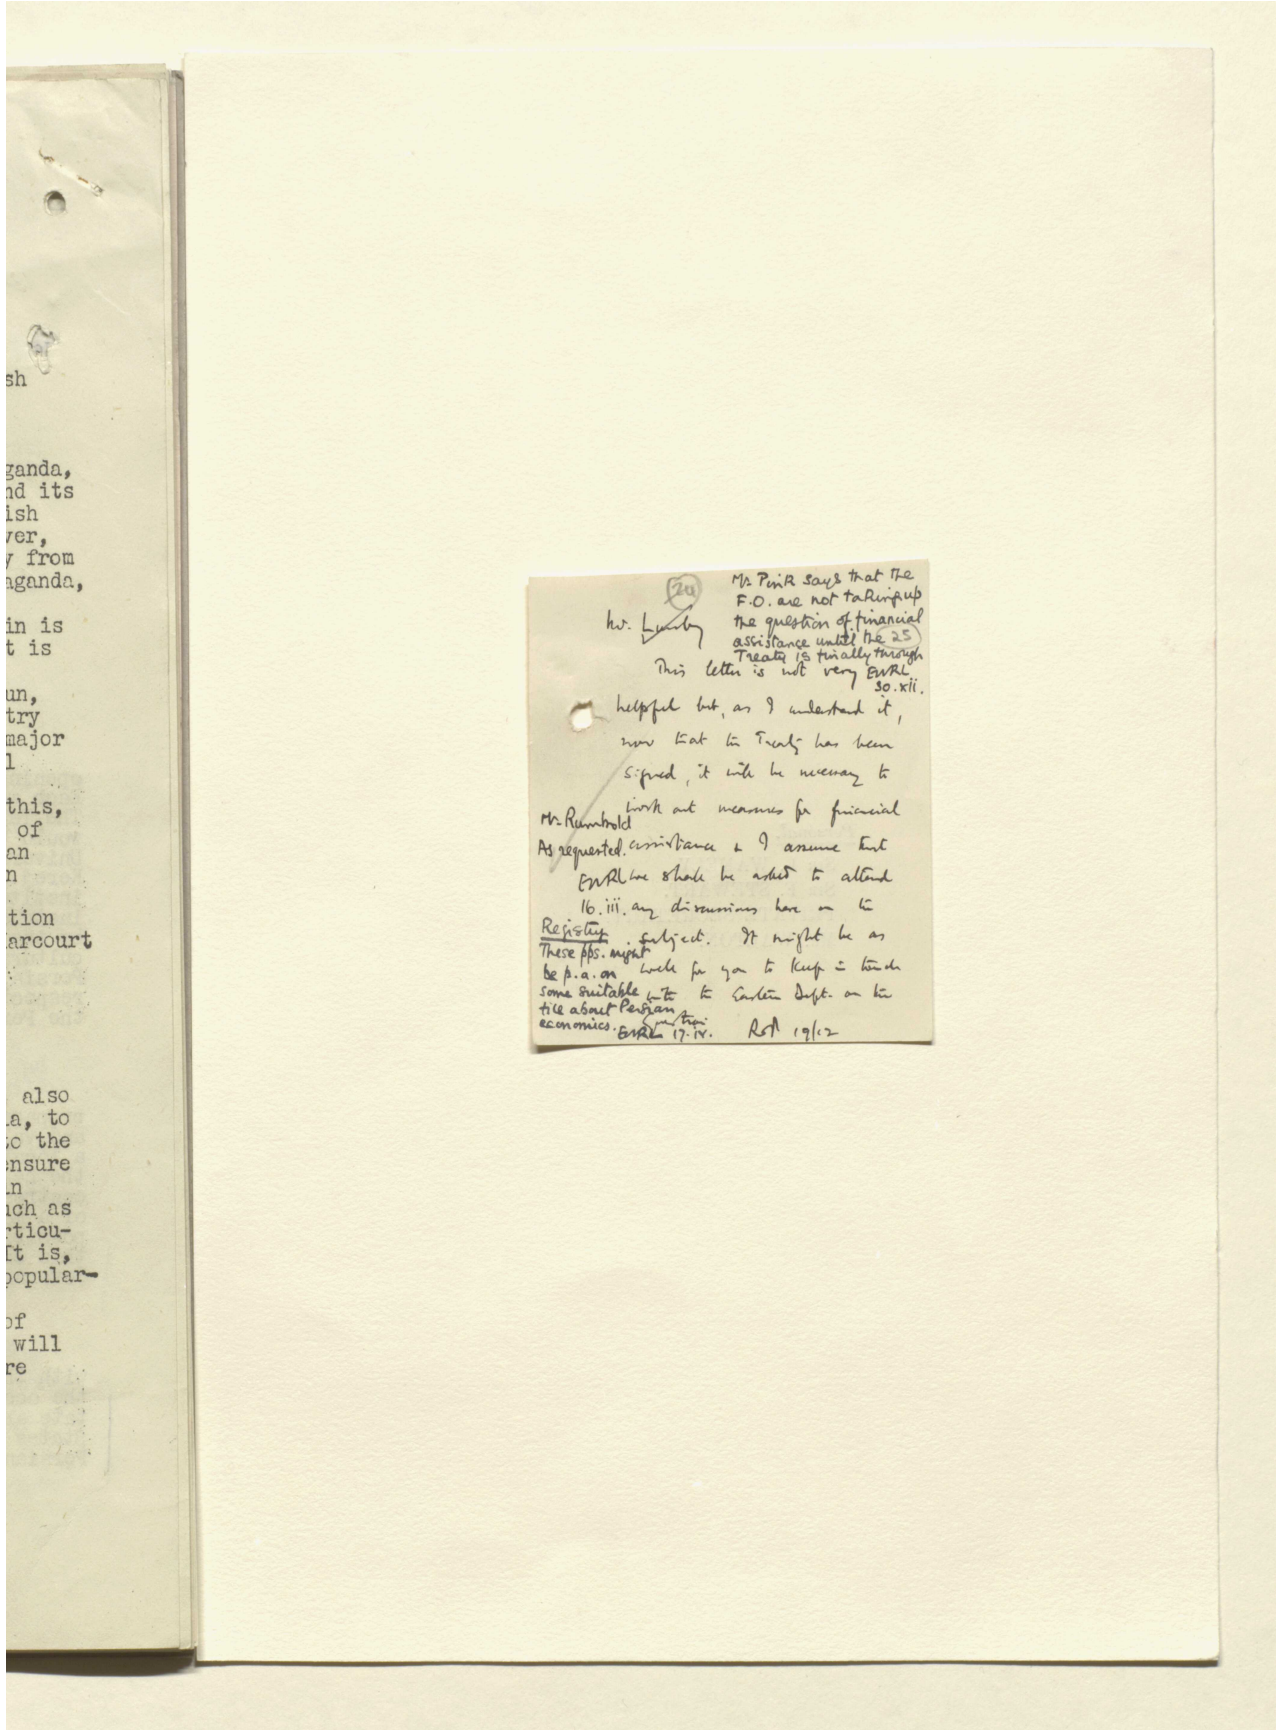 sh
ganda,
nd its
ish
ver,
y from
aganda,
in is
t is
un,
try
major
l
this,
of
an
n
tion
arcourt
also
a, to
to the
ensure
in
uch as
rticu-
It is,
popular-
of
will
re
24
Mr. Pink says that the
F.O. are not taking up
the question of financial
assistance until the 25
Treaty is finally through
EWRL
30.xii.
Mr. Lumby
This letter is not very
helpful but, as I understand it,
now that the Treaty has been
signed, it will be necessary to
work out measures for financial
assistance & I assume that
we shall be asked to attend
any discussions here on the
subject. It might be as
well for you to keep in touch
with the Eastern Dept. on the
question.
19/12
Mr. Rumbold
As requested.
EWRL
16.iii.
Registry
These pps. might
be p.a. on
some suitable
file about Persian
economics.
EWRL 17.iv.